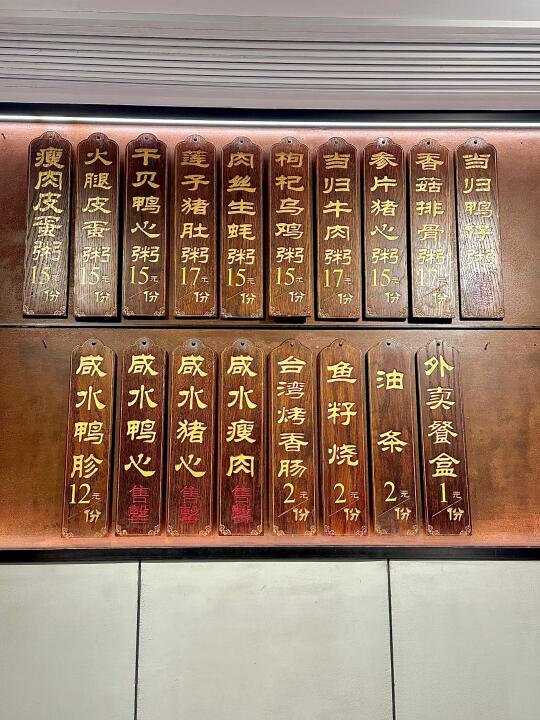 瘦肉皮蛋粥15元/份
火腿皮蛋粥15元/份
干贝鸭心粥15元/份
莲子猪肚粥17元/份
肉丝生蚝粥15元/份
枸杞乌鸡粥15元/份
当归牛肉粥17元/份
参片猪心粥15元/份
香菇排骨粥17元/份
当归鸭 粥 售罄
咸水鸭胗12元/份
咸水鸭心 售罄
咸水猪心 售罄
咸水瘦肉 售罄
台湾烤香肠2元/份
鱼籽烧2元/份
油条2元/份
外卖餐盒1元/份